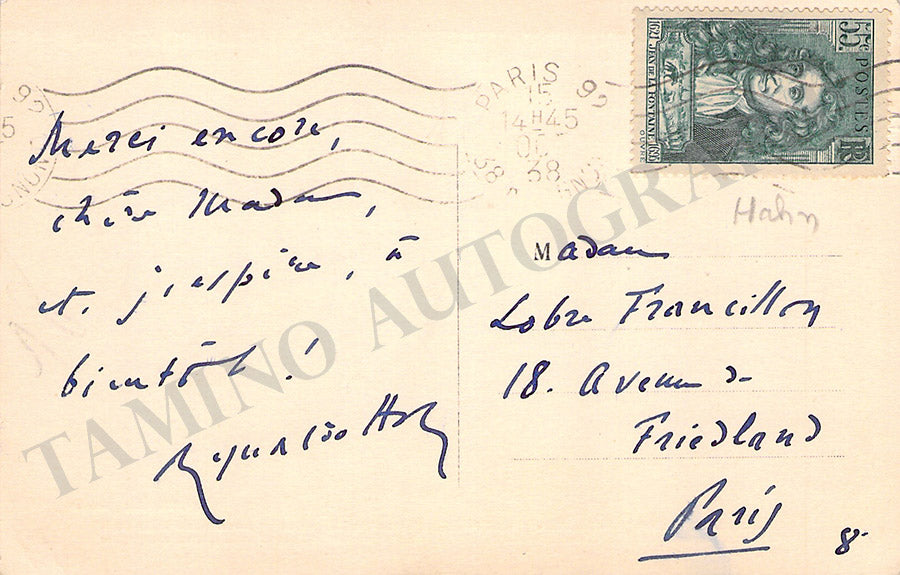 Merci encore,
chère Madame,
et, j'espère, à
bientôt !
Reynaldo Hahn
PARIS
15
14H45
38
55c POSTES RF
1621 JEAN DE LA FONTAINE 1695
Hahn
Madame
Lobre Francillon
18. Avenue de
Friedland
Paris
8e
TAMINO AUTOGRAPHS